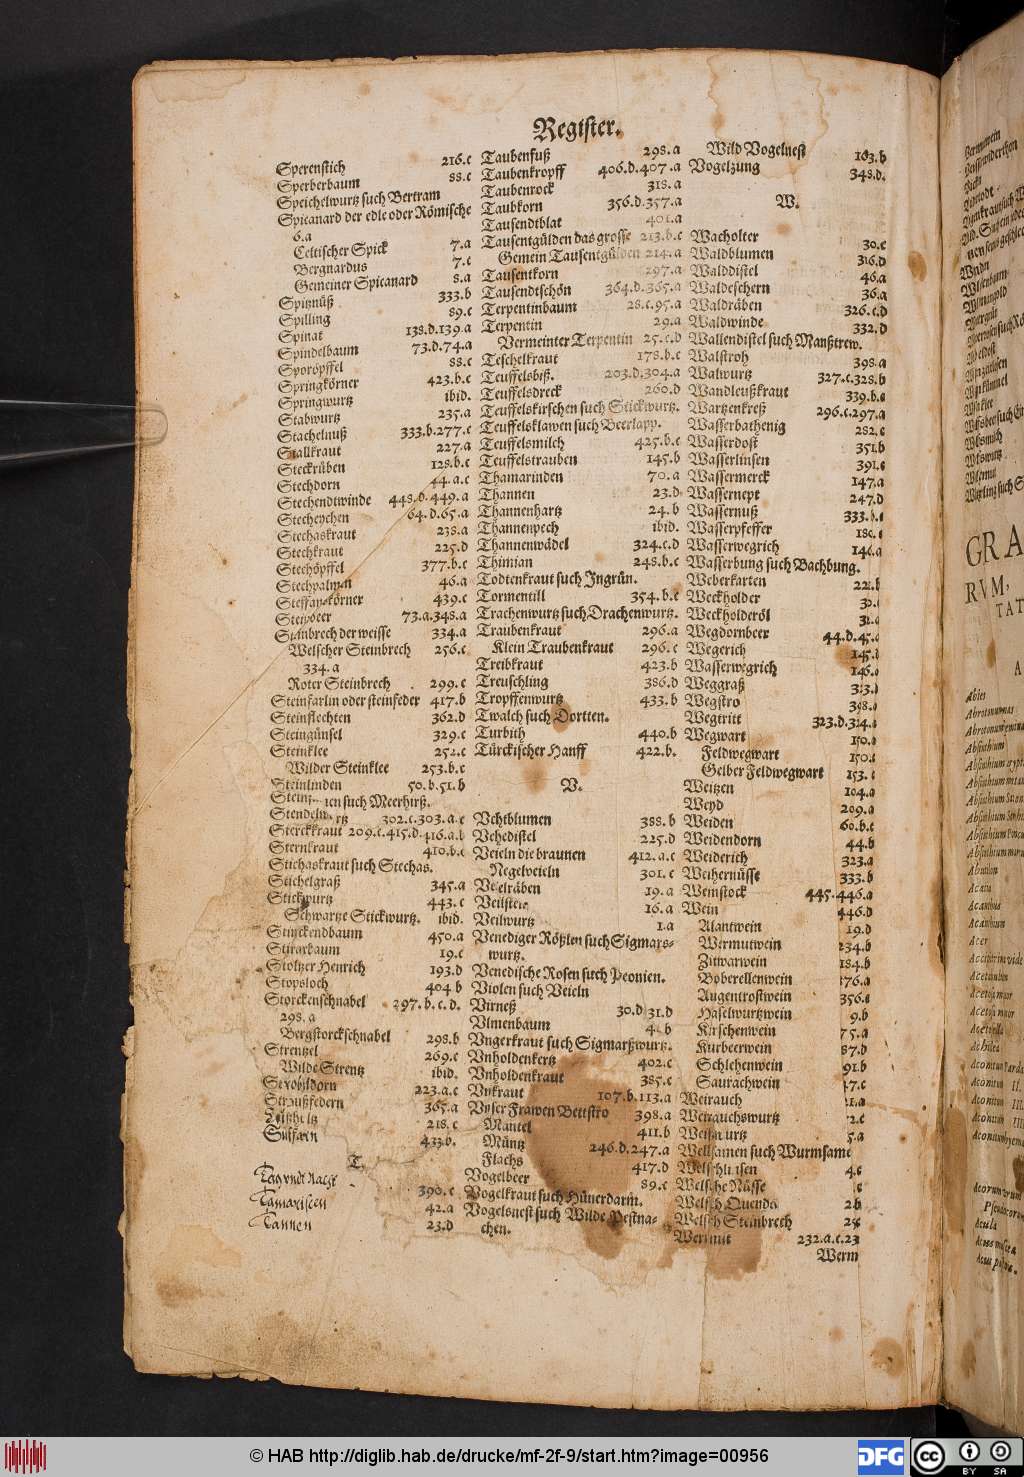 Register.
Sperenstich 216.c
Sperberbaum 88.c
Speichelwurtz such Bertram
Spicanard der edle oder Römische
6.a
Celtischer Spick 7.a
Bergnardus 7.c
Gemeiner Spicanard 8.a
Spitznüß 333.b
Spilling 89.c
Spinat 138.d.139.a
Spindelbaum 73.d.74.a
Sporöpffel 88.c
Springkörner 423.b.c
Springwurtz ibid.
Stabwurtz 235.a
Stachelnuß 333.b.277.c
Stallkraut 227.a
Steckrüben 128.b.c
Stechdorn 44.a.c
Stechendtwinde 448.d.449.a
Stecheychen 64.d.65.a
Stechaskraut 238.a
Stechkraut 225.d
Stechöpffel 377.b.c
Stechpalmen 46.a
Steffanskörner 439.c
73.a.348.a
Steinbrech der weisse 334.a
Welscher Steinbrech 256.c
334.a
Roter Steinbrech 299.c
Steinfarlin oder steinfeder 417.b
Steinflechten 362.d
Steingünsel 329.c
Steinklee 252.c
Wilder Steinklee 253.b.c
Steinlinden 50.b.51.b
such Meerhirß.
302.c.303.a.c
Sterckkraut 209.c.415.d.416.a.b
Sternkraut 410.b.c
Stichaskraut such Stechas.
Stichelgraß 345.a
Stickwurtz 443.c
Schwartze Stickwurtz. ibid.
Stinckendbaum 450.a
Stiraxbaum 19.c
Stoltzer Henrich 193.d
Stopsloch 404 b
Storckenschnabel 297.b.c.d.
298.a
Bergstorckschnabel 298.b
Strentzel 269.c
Wilde Strentz ibid.
223.a.c
Straußfedern 365.a
Süßholtz 218.c
433.b.
T.
390.c
Tamarischen 42.a
Tannen 23.d
Taubenfuß 298.a
Taubenkropff 406.d.407.a
Taubenrock 318.a
Taubkorn 356.d.357.a
Tausendtblat 401.a
Tausentgülden das grosse 213.b.c
Gemein Tausentgülden 214.a
Tausentkorn 297.a
Tausendtschön 364.d.365.a
Terpentinbaum 28.c.95.a
Terpentin 29.a
Vermeinter Terpentin 25.c.d
Teschelkraut 178.b.c
Teuffelsbiß. 203.d.304.a
Teuffelsdreck 260.d
Teuffelskirschen such Stickwurtz.
Teuffelsklawen such Beerlapp.
Teuffelsmilch 425.b.c
Teuffelstrauben 145.b
Thamarinden 70.a
Thannen 23.d
Thannenhartz 24.b
Thannenpech ibid.
Thannenwädel 324.c.d
Thimian 248.b.c
Todtenkraut such Ingrün.
Tormentill 354.b.c
Trachenwurtz such Drachenwurtz.
Traubenkraut 296.a
Klein Traubenkraut 296.c
Treibkraut 423.b
Treuschling 386.d
Tropffenwurtz 433.b
Twalch such Dortten.
Turbith 440.b
Türckischer Hanff 422.b.
V.
Vchtblumen 388.b
Vehedistel 225.d
Veieln die braunen 412.a.c
Negelveieln 301.c
Veielräben 19.a
16.a
Veilwurtz 1.a
Venediger Rößlen such Sigmars-
wurtz.
Venedische Rosen such Peonien.
Violen such Veieln
Virneß 30.d.31.d
Vlmenbaum
Vngerkraut such Sigmarßwurtz.
Vnholdenkertz 402.c
Vnholdenkraut 385.c
Vnkraut 107.b.113.a
Vnser Frawen Bettstro 398.a
Mantel 411.b
Müntz 246.d.247.a
Flachs 417.d
Vogelbeer 89.c
Vogelkraut such Hünerdarm.
Vogelsnest such Wilde Pestna-
chen.
Wild Vogelnest 163.b
Vogelzung 348.d.
W.
Wacholter 30.c
Waldblumen 316.d
Walddistel 46.a
Waldeschern 36.a
Waldräben 326.c.d
Waldwinde 332.d
Wallendistel such Manßtrew.
Walstroh 398.a
Walwurtz 327.c.328.b
Wandleußkraut 339.b.c
Wartzenkreß 296.c.297.a
Wasserbathenig 282.c
Wasserdost 351.b
Wasserlinsen 391.c
Wassermerck 147.a
Wassernept 247.d
Wassernuß 333.b.c
Wasserpfeffer 180.c
Wasserwegrich 146.a
Wasserbung such Bachbung.
Weberkarten 221.b
Weckholder
Weckholderöl
Wegdornbeer 44.d.45.
Wegerich 145.
Wasserwegrich 146.
Weggraß
Wegstro 398.
Wegtritt 323.d.324.
Wegwart 150.
Feldwegwart 150.
Gelber Feldwegwart 153.
Weitzen 104.a
Weyd 209.a
Weiden 60.b.c
Weidendorn 44.b
Weiderich 323.a
Weihernüsse 333.b
Weinstock 445.446.a
Wein 446.d
Alantwein 19.d
Wermutwein 234.b
Zitwarwein 184.b
Boberellenwein 376.a
Augentrostwein 356.c
Haselwurtzwein 9.b
Kirschenwein 75.a
Kurbeerwein 87.d
Schlehenwein 91.b
Saurachwein
Weirauch
Weirauchswurtz
5.a
Wellsamen such Wurmsame
Welsche Nüsse
Welsch Quendel
Welsch Steinbrech
Wermut 232.a.c.23
Werm
GRA
RVM,
TAT
A
Abies
Absinthium
Acanthus
Acer
© HAB http://diglib.hab.de/drucke/mf-2f-9/start.htm?image=00956
DFG
cc
BY SA